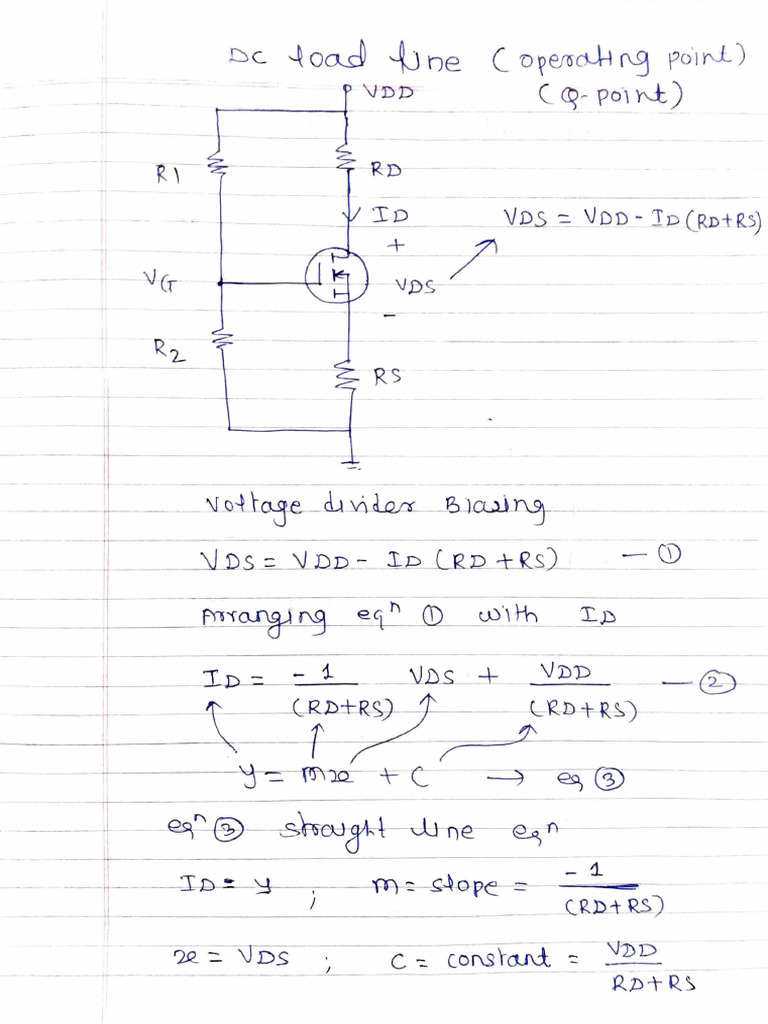 DC load line (operating point)
(Q-point)
VDD
R1
RD
ID
VDS = VDD - ID (RD+RS)
+
VG
VDS
-
R2
RS
Voltage divider Biasing
VDS = VDD - ID (RD + RS) — ①
Arranging eqⁿ ① with ID
ID = -1/(RD+RS) VDS + VDD/(RD+RS) — ②
y = mx + C → eq ③
eqⁿ ③ straight line eqⁿ
ID = y ; m = slope = -1/(RD+RS)
x = VDS ; C = constant = VDD/RD+RS